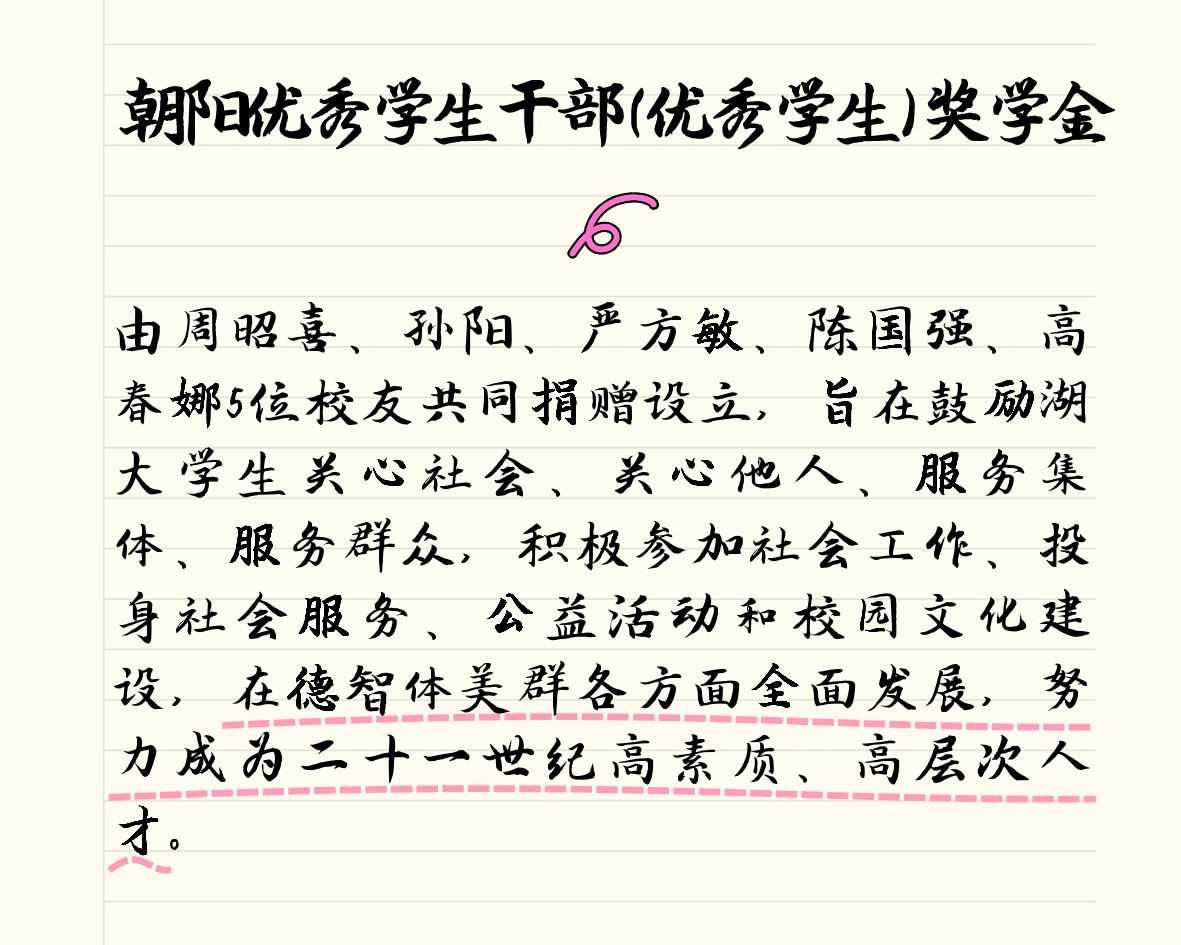 朝阳优秀学生干部(优秀学生)奖学金
由周昭喜、孙阳、严方敏、陈国强、高
春娜5位校友共同捐赠设立，旨在鼓励湖
大学生关心社会、关心他人、服务集
体、服务群众，积极参加社会工作、投
身社会服务、公益活动和校园文化建
设，在德智体美群各方面全面发展，努
力成为二十一世纪高素质、高层次人
才。